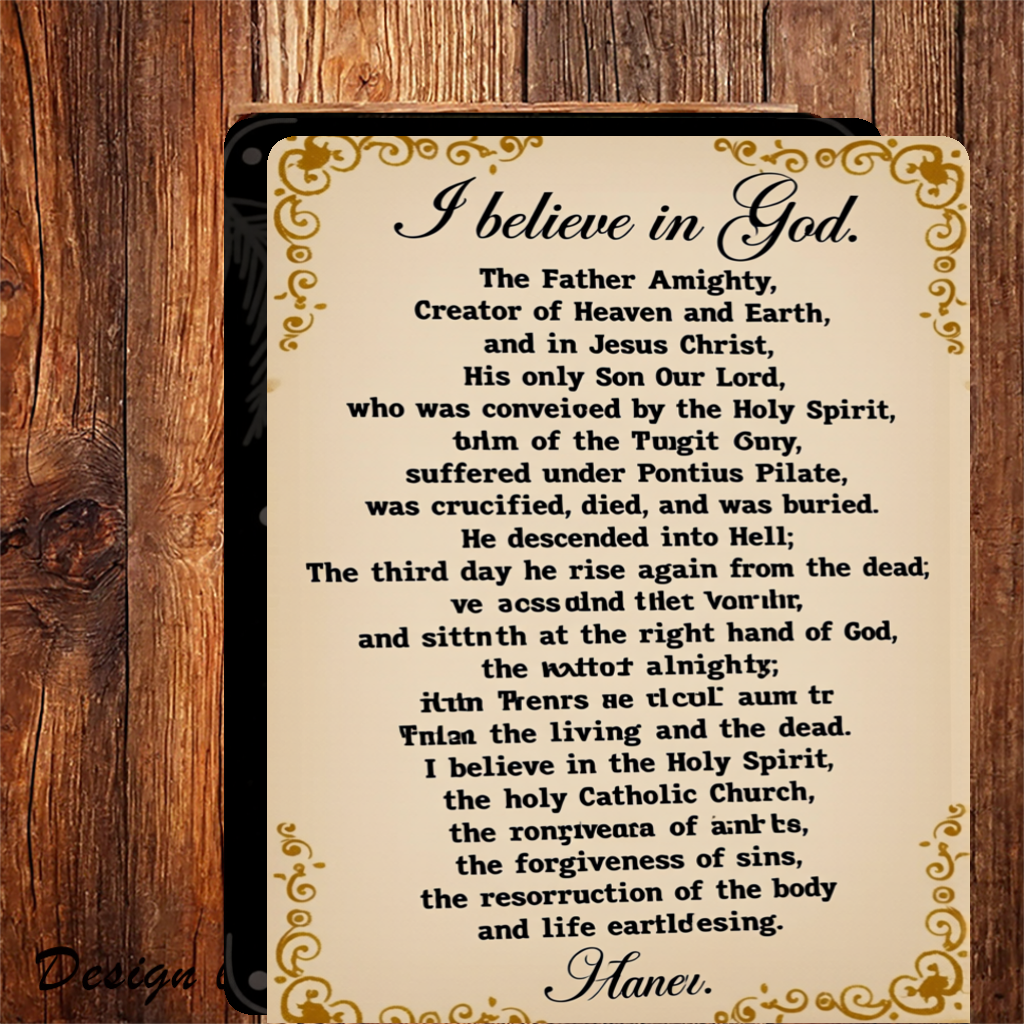 I believe in God.
The Father Amighty,
Creator of Heaven and Earth,
and in Jesus Christ,
His only Son Our Lord,
who was by the Holy Spirit,
of the
suffered under Pontius Pilate,
was crucified, died, and was buried.
He descended into Hell;
The third day he rise again from the dead;
ve
and sittnth at the right hand of God,
the alnighty;
the living and the dead.
I believe in the Holy Spirit,
the holy Catholic Church,
the of
the forgiveness of sins,
the resorruction of the body
and life
Design